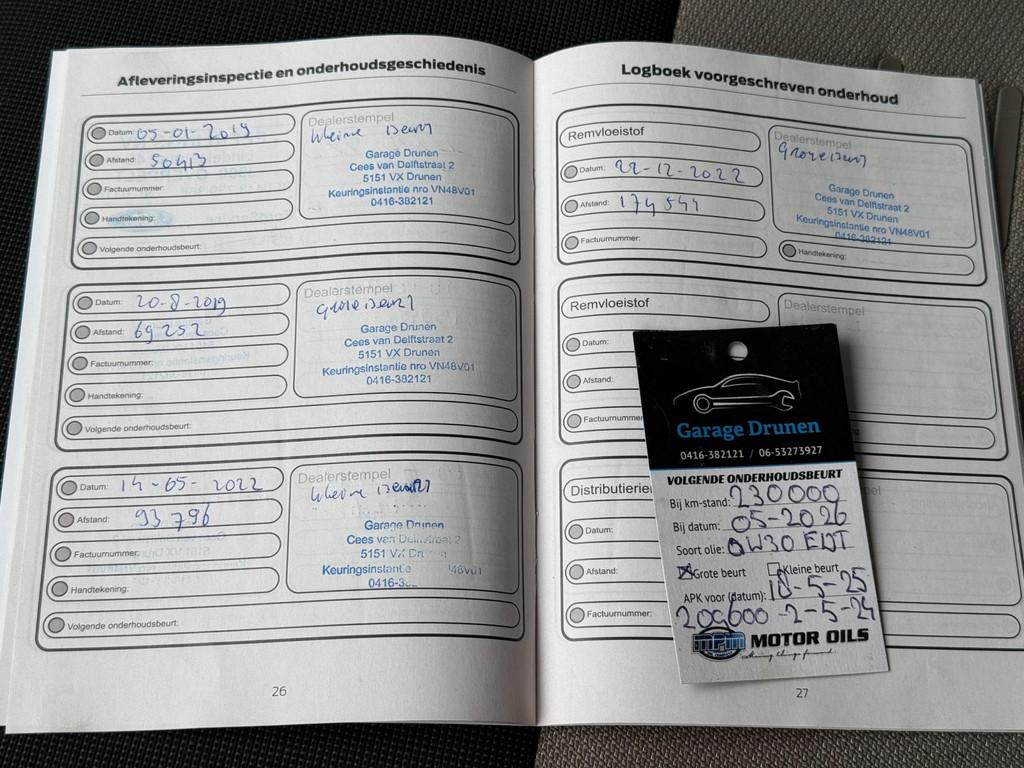 Afleveringsinspectie en onderhoudsgeschiedenis
Datum: 05-01-2019
Afstand: 50413
Factuurnummer:
Handtekening:
Volgende onderhoudsbeurt:
Dealerstempel
kleine beurt
Garage Drunen
Cees van Delftstraat 2
5151 VX Drunen
Keuringsinstantie nro VN48V01
0416-382121
Datum: 20-8-2019
Afstand: 69252
Factuurnummer:
Handtekening:
Volgende onderhoudsbeurt:
Dealerstempel
grote beurt
Garage Drunen
Cees van Delftstraat 2
5151 VX Drunen
Keuringsinstantie nro VN48V01
0416-382121
Datum: 14-05-2022
Afstand: 93796
Factuurnummer:
Handtekening:
Volgende onderhoudsbeurt:
Dealerstempel
kleine beurt
Garage Drunen
Cees van Delftstraat 2
5151 VX Dr
Keuringsinstantie V48V01
0416-3
26
Logboek voorgeschreven onderhoud
Remvloeistof
Datum: 22-12-2022
Afstand: 174544
Factuurnummer:
Dealerstempel
Grote beurt
Garage Drunen
Cees van Delftstraat 2
5151 VX Drunen
Keuringsinstantie nro VN48V01
0416-382121
Handtekening:
Remvloeistof
Datum:
Afstand:
Factuurnummer
Dealerstempel
Distributierie
Datum:
Afstand:
Factuurnummer:
pel
27
Garage Drunen
0416-382121 / 06-53273927
VOLGENDE ONDERHOUDSBEURT
Bij km-stand: 230000
Bij datum: 05-2026
Soort olie: 0W30
Grote beurt Kleine beurt
APK voor (datum): 18-5-25
209600 - 2-5-24
MPM MOTOR OILS